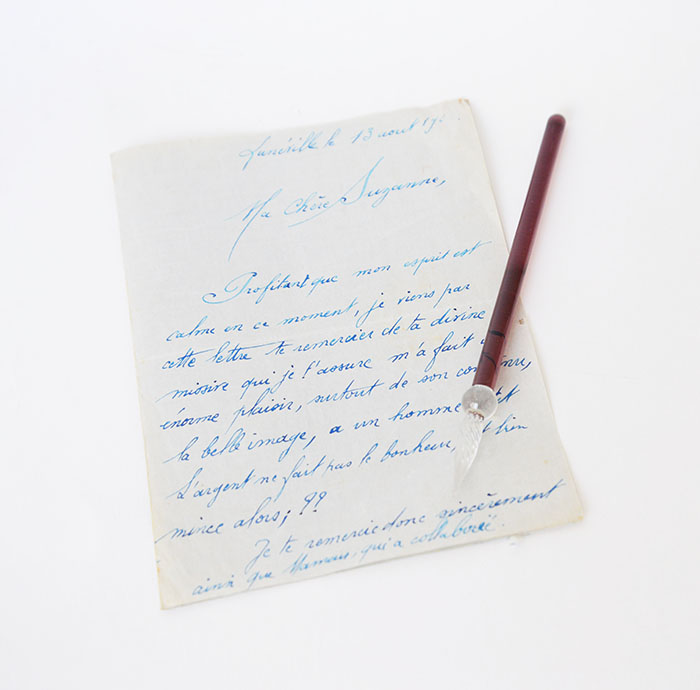 Lunéville le 13 aout 19
Ma Chère Suzanne,
Profitant que mon esprit est
calme en ce moment, je viens par
cette lettre te remercier de ta divine
missire qui je t'assure m'a fait
énorme plaisir, surtout de son
la belle image, a un homme
L'argent ne fait pas le bonheur, bien
mince alors; ??
Je te remercie donc sincèrement
ainsi que Maman, qui a collaboré.